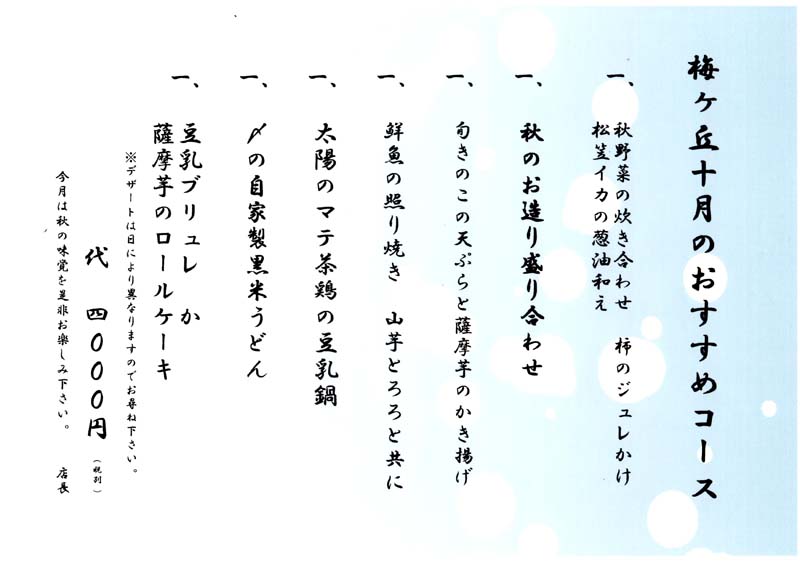 梅ヶ丘十月のおすすめコース
一、秋野菜の炊き合わせ 柿のジュレかけ
松笠イカの葱油和え
一、秋のお造り盛り合わせ
一、旬きのこの天ぷらと薩摩芋のかき揚げ
一、鮮魚の照り焼き 山芋とろろと共に
一、太陽のマテ茶鶏の豆乳鍋
一、〆の自家製黒米うどん
一、豆乳ブリュレ か
薩摩芋のロールケーキ
※デザートは日により異なりますのでお尋ね下さい。
代 四000円(税別)
今月は秋の味覚を是非お楽しみ下さい。 店長